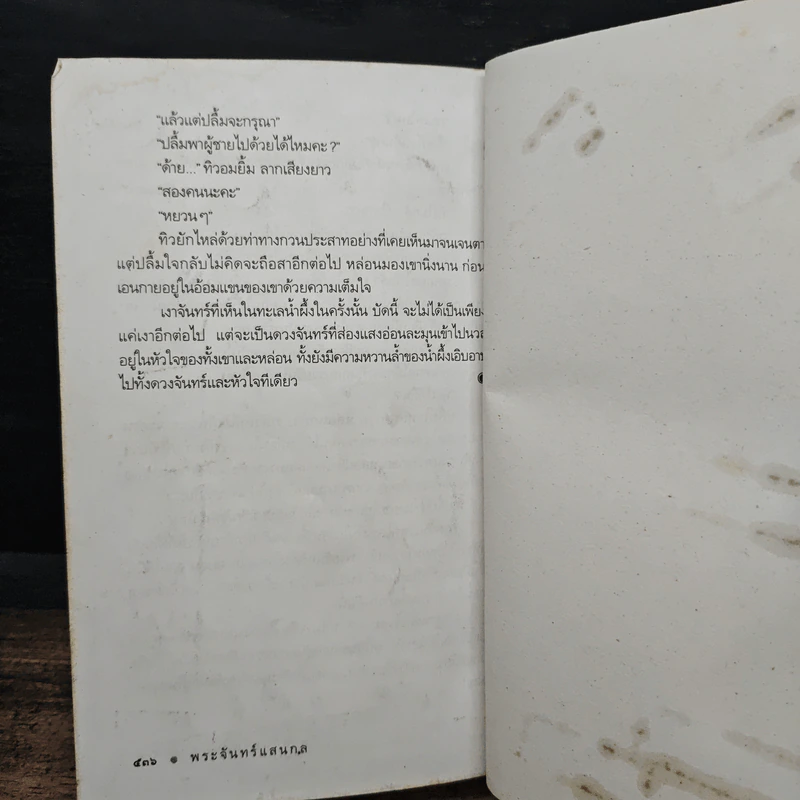 "แล้วแต่ปลื้มจะกรุณา"
"ปลื้มพาผู้ชายไปด้วยได้ไหมคะ ?"
"ด้าย..." ทิวอมยิ้ม ลากเสียงยาว
"สองคนนะคะ"
"หยวน ๆ"
ทิวยักไหล่ด้วยท่าทางกวนประสาทอย่างที่เคยเห็นมาจนเจนตา
แต่ปลื้มใจกลับไม่คิดจะถือสาอีกต่อไป หล่อนมองเขานิ่งนาน ก่อน
เอนกายอยู่ในอ้อมแขนของเขาด้วยความเต็มใจ
เงาจันทร์ที่เห็นในทะเลน้ำผึ้งในครั้งนั้น บัดนี้ จะไม่ได้เป็นเพียง
แค่เงาอีกต่อไป แต่จะเป็นดวงจันทร์ที่ส่องแสงอ่อนละมุนเข้าไป
อยู่ในหัวใจของทั้งเขาและหล่อน ทั้งยังมีความหวานล้ำของน้ำผึ้ง
ไปทั้งดวงจันทร์และหัวใจทีเดียว
๔๓๖ พระจันทร์แสนกล